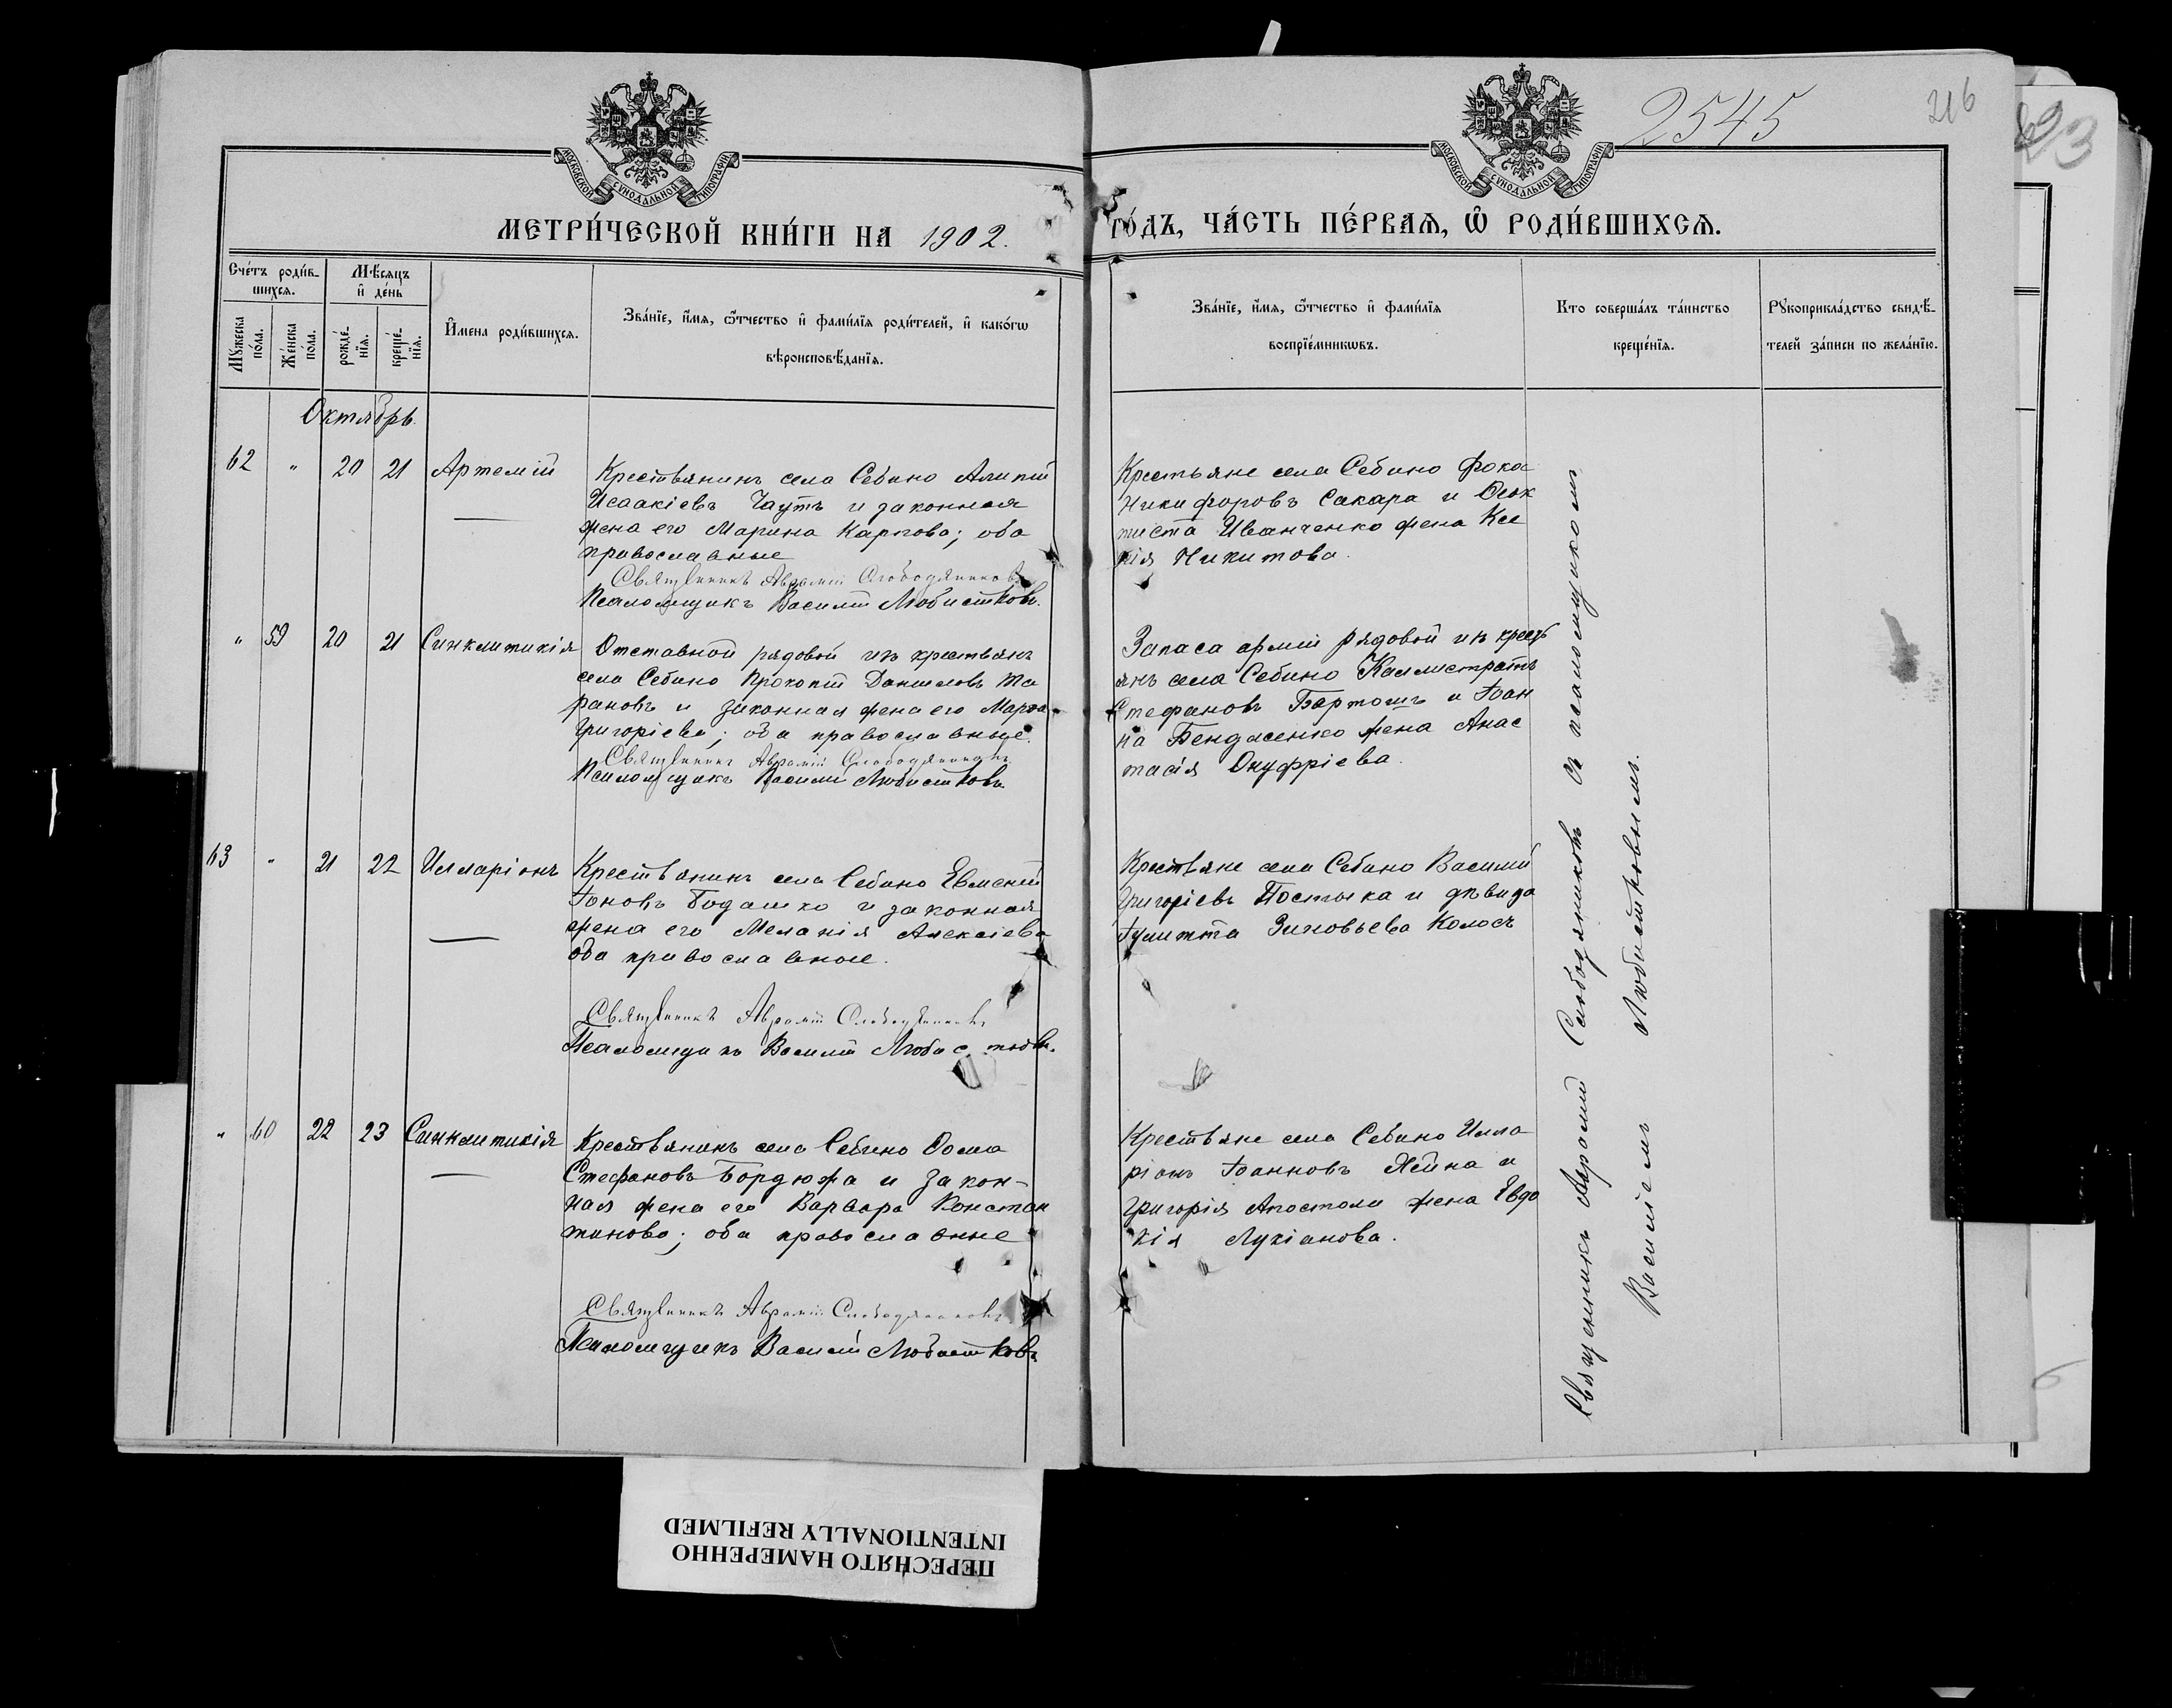 МОСКОВСКОЙ СѴНОДАЛЬНОЙ ТИПОГРАФІИ
МОСКОВСКОЙ СѴНОДАЛЬНОЙ ТИПОГРАФІИ
2545
216
23
МЕТРИ́ЧЕСКОЙ КНИ́ГИ НА 1902.
ГО́ДЪ, ЧА́СТЬ ПЕ́РВАЯ, Ѽ РОДИ́ВШИХСЯ.
Сче́тъ роди́в-
шихся.
Мѣ́сяцъ
и҆ де́нь
Мꙋжеска по́ла.
Же́нска по́ла.
рожде́-
нїя.
креще́-
нїя.
И҆мена роди́вшихся.
Зва́нїе, и҆́мя, ѻ҆́тчество и҆ фами́лїя роди́телей, и҆ како́гѡ
вѣроисповѣ́данїя.
Зва́нїе, и҆́мя, ѻ҆́тчество и҆ фами́лїя
воспрїе́мникѡвъ.
Кто соверша́лъ та́инство
креще́нїя.
Рꙋкоприкла́дство свидѣ́-
телей за́писи по жела́нїю.
Октябрь.
62 " 20 21 Артемій
Крестьянинъ села Себино Алипій
Исаакіевъ Чаутъ и законная
жена его Марина Карпова; оба
православные
Священникъ Аврамій Слободяниковъ
Псаломщикъ Василій Любистковъ.
Крестьяне села Себино Фока
Никифоровъ Сакара и Ѳеок
тиста Иванченко жена Ксе
нія Никитова.
" 59 20 21 Синклитикія
Отставной рядовой изъ крестьянъ
села Себино Прокопій Даниловъ Та
рановъ и законная жена его Марѳа
Григоріева; оба православные.
Священникъ Аврамій Слободяниковъ
Псаломщикъ Василій Любистковъ.
Запаса арміи рядовой изъ кресть
янъ села Себино Каллистратъ
Стефановъ Бартошъ и Іоан
на Бендасенко жена Анас
тасія Онуфріева.
63 " 21 22 Илларіонъ
Крестьянинъ села Себино Евменій
Іоновъ Бодашко и законная
жена его Меланія Алексіева
оба православные.
Священникъ Аврамій Слободяниковъ
Псаломщикъ Василій Любистковъ.
Крестьяне села Себино Василій
Григоріевъ Постыка и дѣвица
Іулитта Зиновьева Колосъ
" 60 22 23 Синклитикія
Крестьянинъ села Себино Ѳома
Стефановъ Бордюжа и закон-
ная жена его Варвара Констан
тинова; оба православные
Священникъ Аврамій Слободяниковъ
Псаломщикъ Василій Любистковъ
Крестьяне села Себино Илла
ріонъ Іоанновъ Яйна и
Григорія Апостола жена Евдо
кія Лукіанова.
Священникъ Аврамій Слободяниковъ съ псаломщикомъ
Василіемъ Любистковымъ.
ПЕРЕСНЯТО НАМЕРЕННО
INTENTIONALLY REFILMED